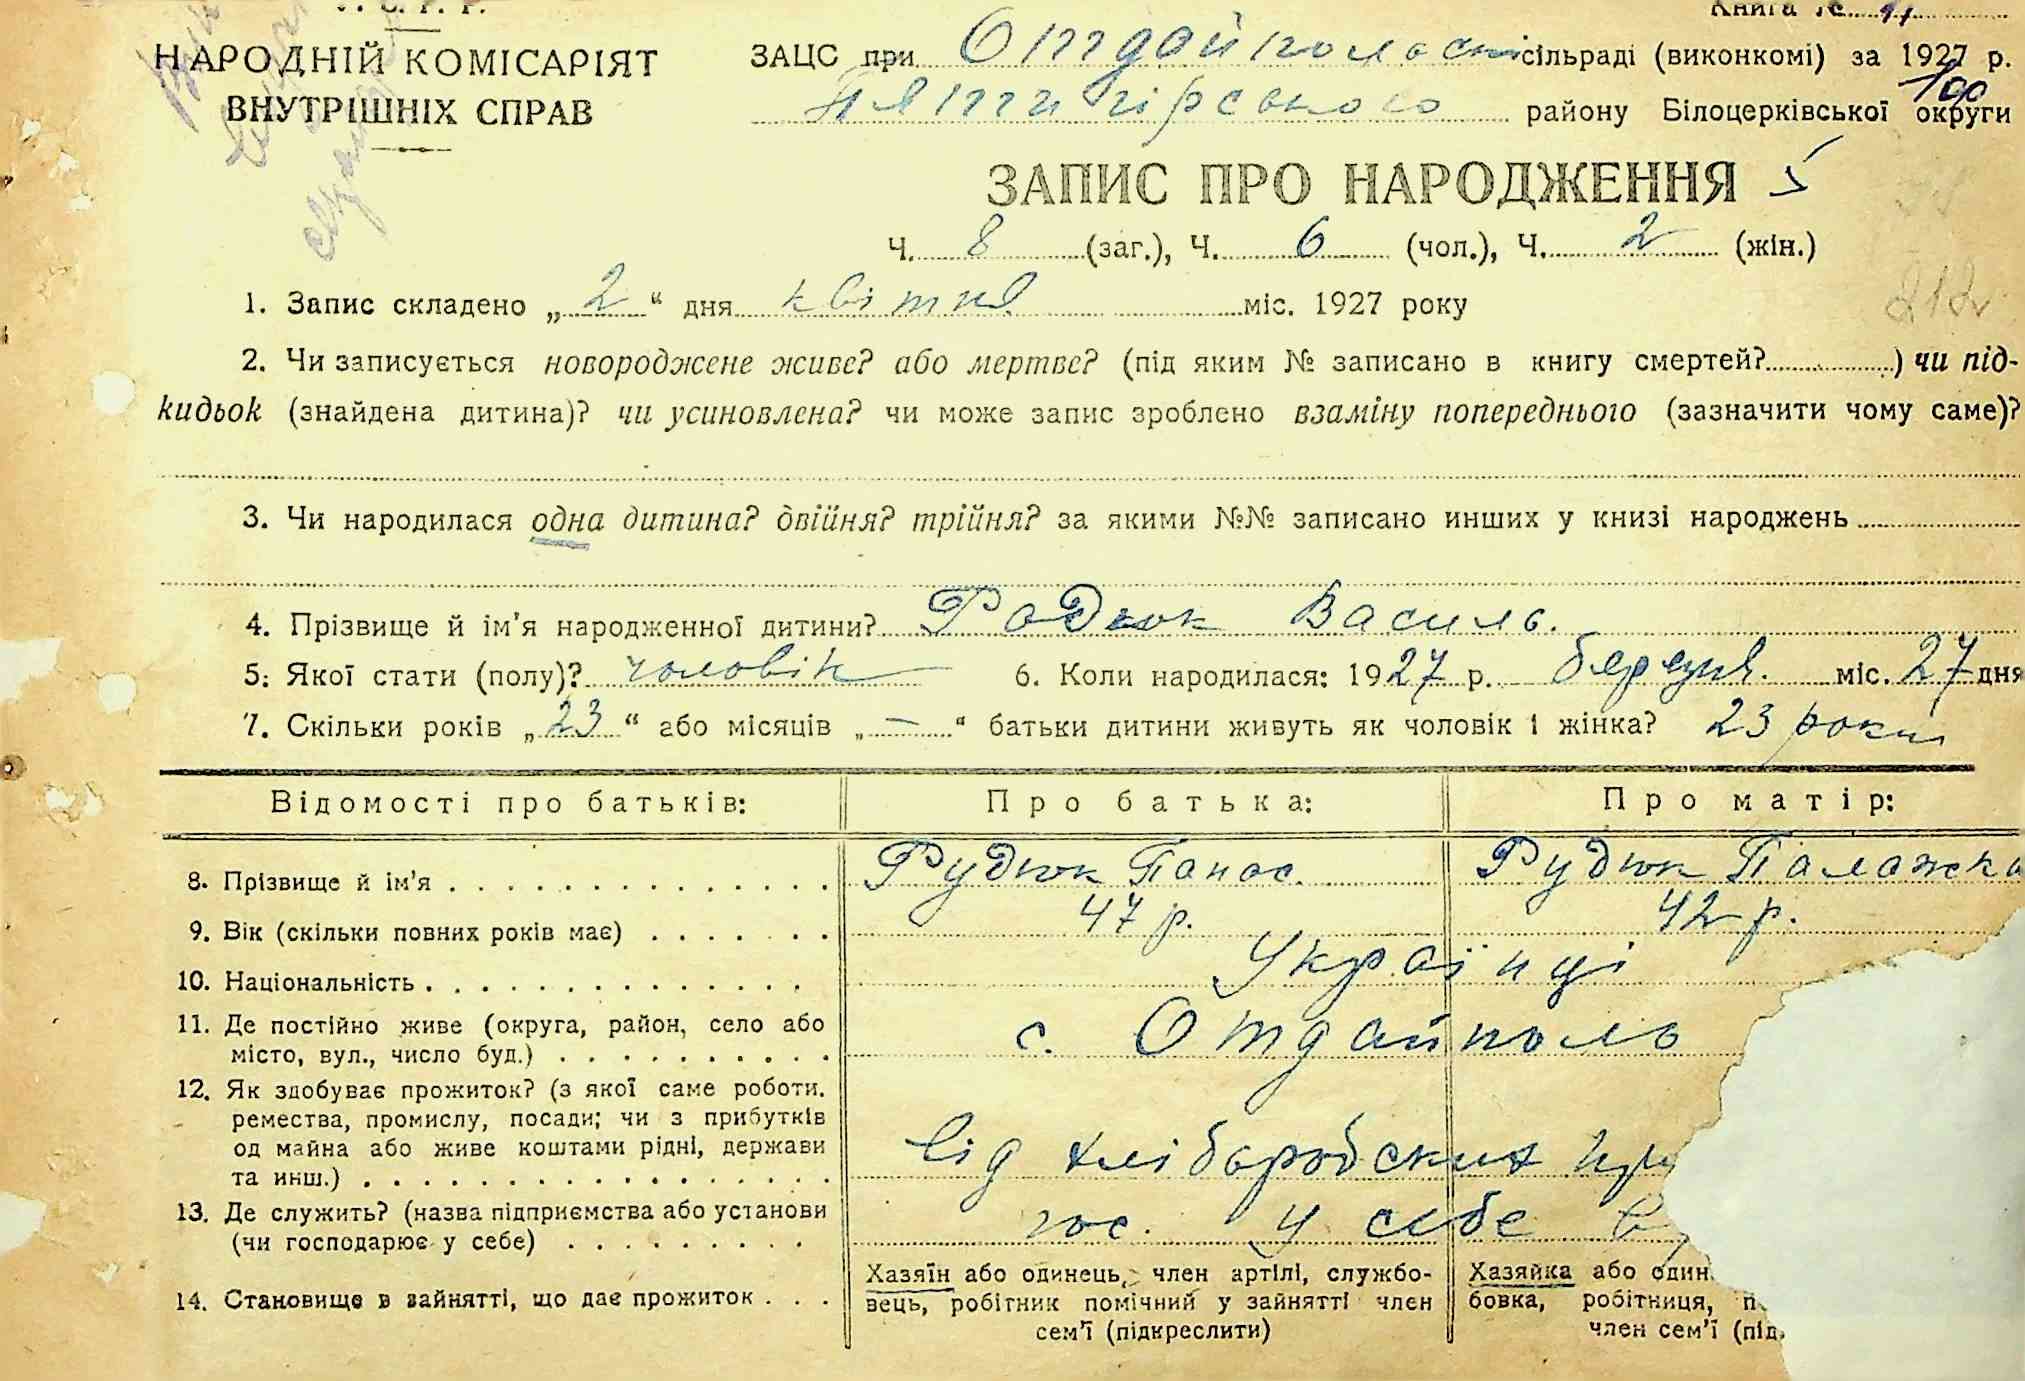 У. С. Р. Р.
Книга №
НАРОДНІЙ КОМІСАРІЯТ
ВНУТРІШНІХ СПРАВ
ЗАЦС при Отдайпольскі сільраді (виконкомі) за 1927 р.
Пятигірського району Білоцерківської округи
100
ЗАПИС ПРО НАРОДЖЕННЯ
Ч. 8 (заг.), Ч. 6 (чол.), Ч. 2 (жін.)
1. Запис складено „ 2 “ дня квітня міс. 1927 року
212
2. Чи записується новороджене живе? або мертве? (під яким № записано в книгу смертей? ) чи під-
кидьок (знайдена дитина)? чи усиновлена? чи може запис зроблено взаміну попереднього (зазначити чому саме)?
3. Чи народилася одна дитина? двійня? трійня? за якими №№ записано инших у книзі народжень
4. Прізвище й ім'я народженної дитини? Радюк Василь.
5: Якої стати (полу)? чоловік 6. Коли народилася: 1927 р. березня. міс. 27 дня
7. Скільки років „ 23 “ або місяців „ — “ батьки дитини живуть як чоловік і жінка? 23 роки
Відомості про батьків: Про батька: Про матір:
8. Прізвище й ім'я Рудюк Панас. Рудюк Палажка
9. Вік (скільки повних років має) 47 р. 42 р.
10. Національність Українці
11. Де постійно живе (округа, район, село або
місто, вул., число буд.) с. Отдайполь
12. Як здобуває прожиток? (з якої саме роботи.
ремества, промислу, посади; чи з прибутків
од майна або живе коштами рідні, держави
та инш.) від хліборобских
13. Де служить? (назва підприємства або установи
(чи господарює у себе) гос. у себе
14. Становище в зайнятті, що дає прожиток
Хазяїн або одинець, член артілі, службо-
вець, робітник помічний у зайнятті член
сем'ї (підкреслити)
Хазяйка або один
бовка, робітниця, п
член сем'ї (під